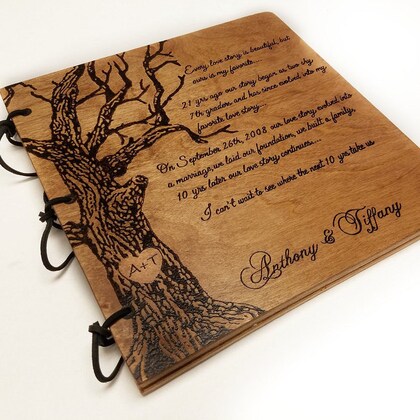 Every love story is beautiful, but
ours is my favorite...
21 yrs ago our story began as two shy
7th graders, and has since evolved into my
favorite love story...
On September 26th, 2008 our love story evolved into
a marriage, we laid our foundation, we built a family.
10 yrs later our love story continues...
I can't wait to see where the next 10 yrs take us
Anthony & Tiffany
A+T